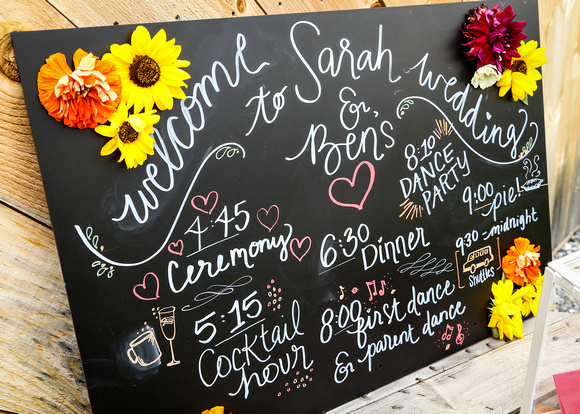 welcome
to
Sarah
&
Bens
wedding
4:45
Ceremony
5:15
Cocktail
hour
6:30
Dinner
8:00
first dance
& parent dance
8:10
DANCE
PARTY
9:00
pie!
9:30 - midnight
Shuttles